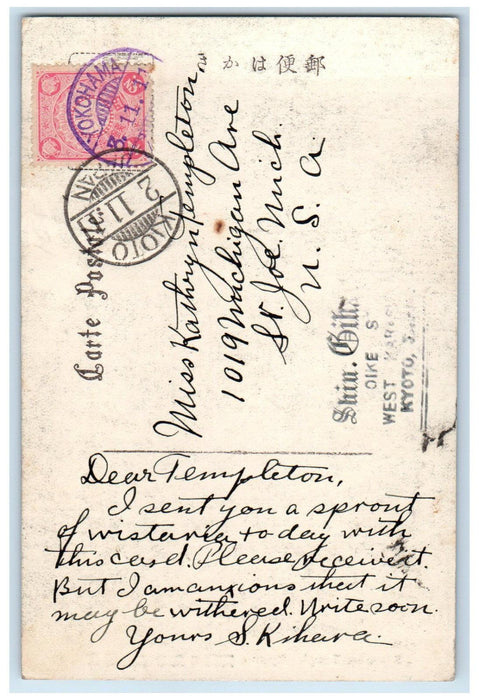 郵便はかき
Carte Postale
YOKOHAMA
KIOTO
2.11.11
JAPAN
Miss Kathryn Templeton,
1019 Michigan Ave
St. Joe. Mich.
U. S. A.
OIKE S
WEST
KYOTO,
Dear Templeton,
I sent you a sprout
of wistaria to day with
this card. Please receive it.
But I am anxious that it
may be withered. Write soon.
Yours S. Kihara.